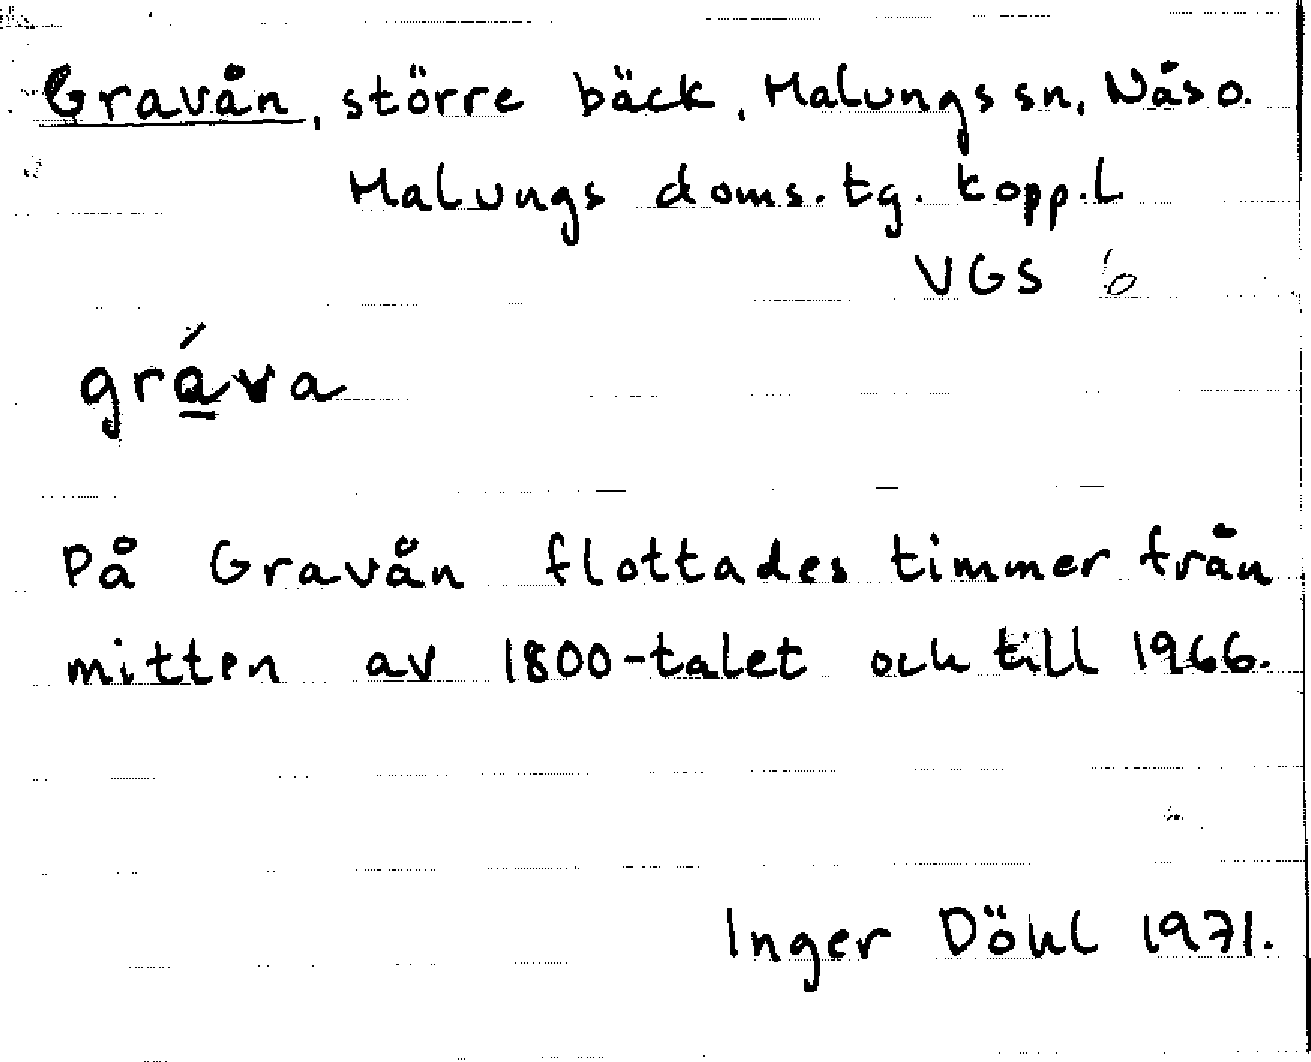 Gravån, större bäck, Malungs sn, Nås o.
Malungs doms.tg. Kopp.l
VGS 6
grá̲va
På Gravån flottades timmer från
mitten av 1800-talet och till 1966.
Inger Döhl 1971.